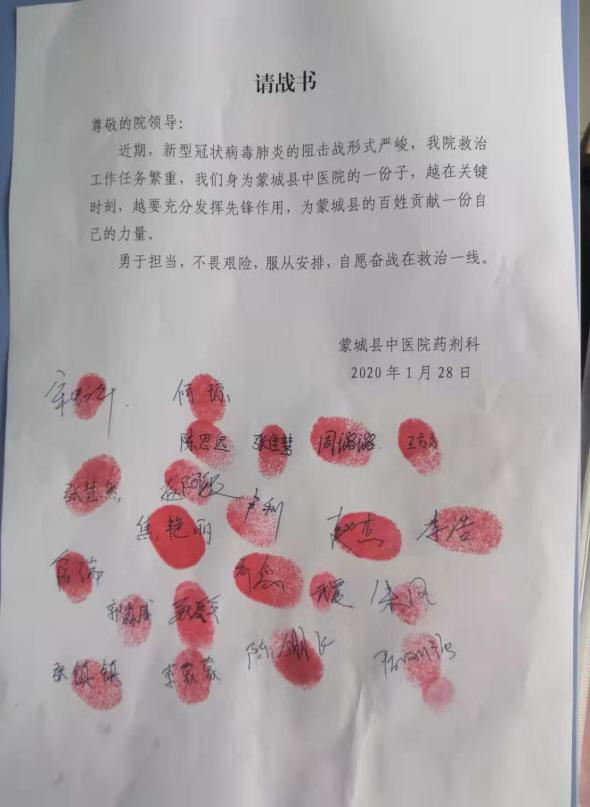 请战书
尊敬的院领导：
近期，新型冠状病毒肺炎的阻击战形式严峻，我院救治
工作任务繁重，我们身为蒙城县中医院的一份子，越在关键
时刻，越要充分发挥先锋作用，为蒙城县的百姓贡献一份自
己的力量。
勇于担当，不畏艰险，服从安排，自愿奋战在救治一线。
蒙城县中医院药剂科
2020年1月28日
何琼
陈思远 张佳慧 周璐璐 王方方
张慧然
焦艳丽 卢利 赵杰 李浩
张镇镇 李蒙蒙